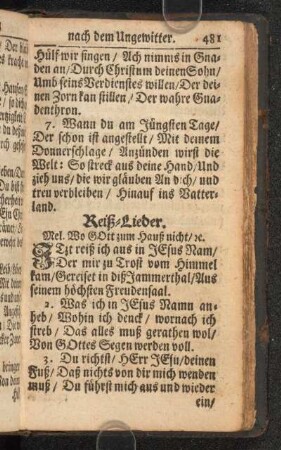 nach dem Ungewitter. 481
Hülf wir singen / Ach nimms in Gna-
den an / Durch Christum deinen Sohn /
Umb seins Verdienstes willen / Der dei-
nen Zorn kan stillen / Der wahre Gna-
denthron.
7. Wann du am Jüngsten Tage /
Der schon ist angestellt / Mit deinem
Donnerschlage / Anzünden wirst die
Welt: So streck aus deine Hand / Und
zieh uns / die wir gläuben An dich / und
treu verbleiben / Hinauf ins Vatter-
land.
Reiß-Lieder.
Mel. Wo GOtt zum Hauß nicht / ꝛc.
JTzt reiß ich aus in JEsus Nam /
Der mir zu Trost vom Himmel
kam / Gereiset in diß Jammerthal / Aus
seinem höchsten Freudensaal.
2. Was ich in JEsus Namn an-
heb / Wohin ich denck / wornach ich
streb / Das alles muß gerathen wol /
Von GOttes Segen werden voll.
3. Du richtst / HErr JEsu / deinen
Fuß / Daß nichts von dir mich wenden
muß / Du führst mich aus und wieder
ein /